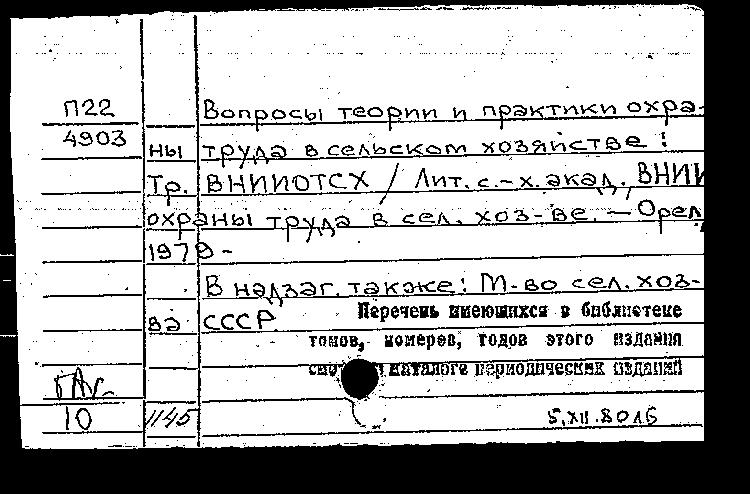 П22 Вопросы теории и практики охра-
4903 ны труда в сельском хозяйстве:
Тр. ВНИИОТСХ / Лит. с.-х. акад., ВНИИ
охраны труда в сел. хоз-ве. — Орел,
1979 -
В надзаг. также: М-во сел. хоз-
ва СССР Перечень имеющихся в библиотеке
томов, номеров, годов этого издания
каталоге периодических изданий
10 1145 5.XII.80